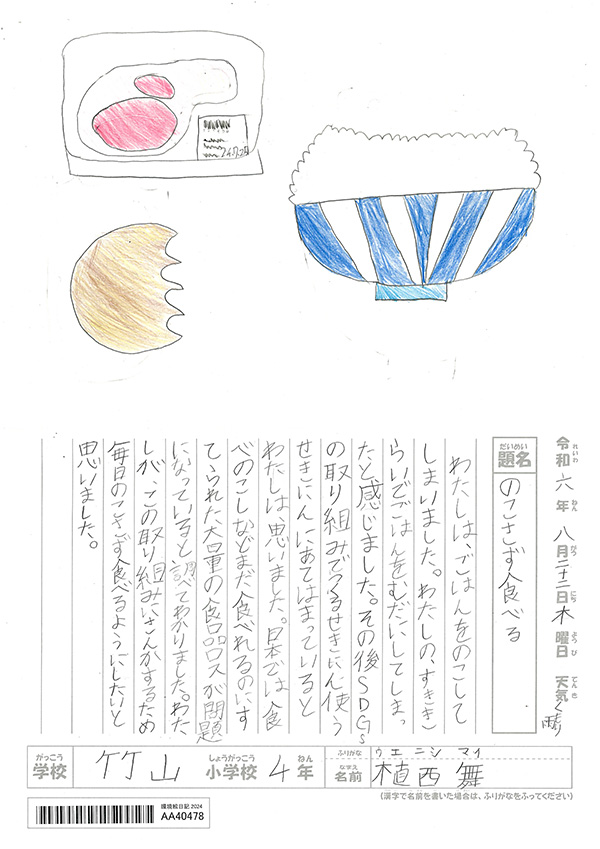 24.7.20
令和 六 年 八月 二十二日 木 曜日 天気 くもり 雨
れいわ ねん がつ にち ようび てんき
だいめい
題名
のこさず食べる
わたしは、ごはんをのこして
しまいました。わたしの、すきき
らいでごはんをむだにしてしまっ
たと感じました。その後SDGs
の取り組みでつくるせきにん使う
せきにんにあてはまっていると
わたしは、思いました。日本では食
べのこしなどまだ食べれるのにす
てられた大量の食品ロスが問題
になっていると調べてわかりました。わた
しが、この取り組みにさんかするため
毎日のこさず食べるようにしたいと
思いました。
がっこう
学校
竹山
しょうがっこう
小学校
4
ねん
年
ふりがな
ウエニシ マイ
なまえ
名前
植西 舞
(漢字で名前を書いた場合は、ふりがなをふってください)
環境絵日記 2024
AA40478